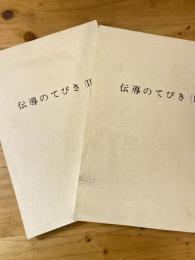 伝導のてびき(II
伝導のてびき(I